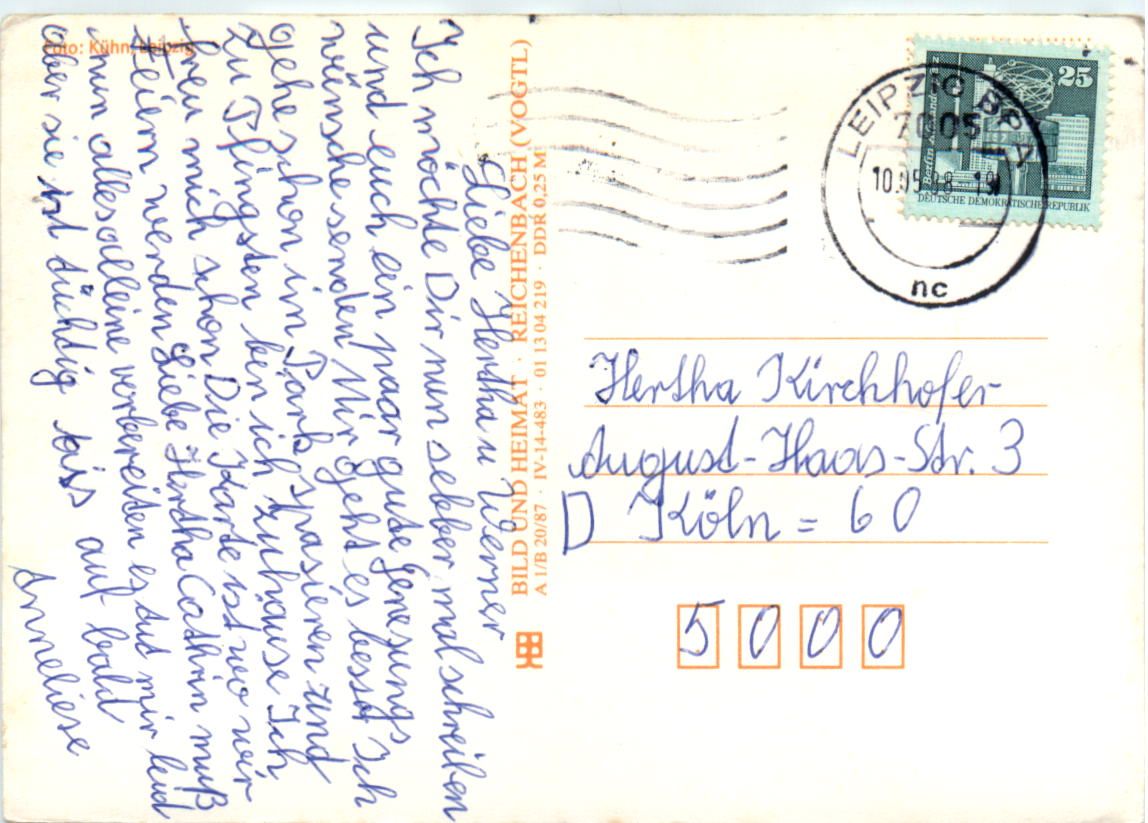 Liebe Hertha u Werner
Ich möchte Dir nun selber mal schreiben
und euch ein paar gute Genesungs
wünsche senden Mir geht es besser Ich
gehe schon im Park spasieren und
zu Pfingsten ben ich zuhause Ich
freu mich schon Die Karte ist wo wir
Feiern werden Liebe Hertha Cathrin muß
nun alles alleine vorbereiten es tut mir leid
aber sie ist tüchtig bis auf bald
Anneliese
Foto: Kühn, Leipzig
BILD UND HEIMAT · REICHENBACH (VOGTL)
A 1/B 20/87 · IV-14-483 · 01 13 04 219 · DDR 0,25 M
LEIPZIG BPA
7005
10.05.88
nc
25
Berlin
DEUTSCHE DEMOKRATISCHE REPUBLIK
Hertha Kirchhofer
August-Haas-Str. 3
D Köln = 60
5000